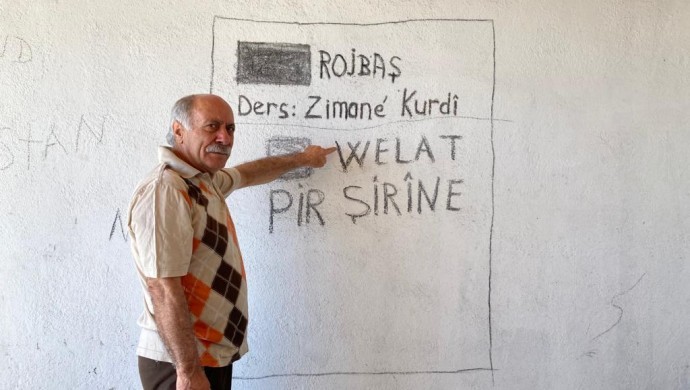 ROJBAŞ
Ders: Zimané Kurdî
WELAT
PİR ŞİRÎNE